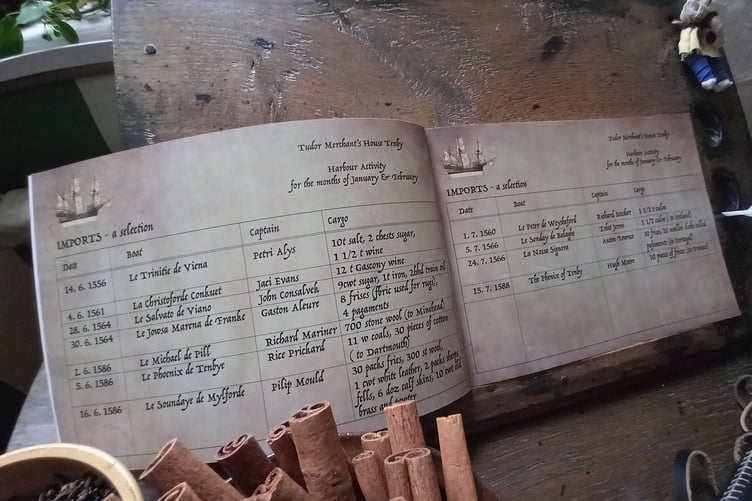 Tudor Merchant's House Tenby
Harbour Activity
for the months of January & February
IMPORTS - a selection
Date Boat Captain Cargo
14. 6. 1556 Le Trinitie de Viena Petri Alys 10t sale, 2 chests sugar,
1 1/2 t wine
4. 6. 1561 La Christoforde Conkuet Jaci Evans 12 t Gascony wine
28. 6. 1564 Le Salvato de Viano John Consalveh 9cwt sugar, 1t iron, 2hhd train oil
30. 6. 1564 Le Jowsa Marena de Franke Gaston Aleure 8 frises (fbric used for rugs),
4 pagaments
2. 6. 1586 Le Michael de Pill Richard Mariner 700 stone wool (to Minehead)
5. 6. 1586 Le Phoenix de Tenbye Rice Prichard 11 w coals, 30 pieces of cotton
( to Dartmouth)
16. 6. 1586 Le Soundaye de Mylforde Pilip Mould 30 packs fries, 300 st wool,
1 cwt white leather, 2 packs sheeps
fells, 6 doz calf skins, 10 cwt old
brass and
Tudor Merchant's House Tenby
Harbour Activity
for the months of January & February
IMPORTS - a selection
Date Boat Captain Cargo
1. 7. 1560 Le Peter de Weyxheford Richard 1 1/2 t
5. 7. 1566 Le Sonday de 1 1/2 t ( to Ireland)
24. 7. 1566 La Noua Signora 10 fries, 20
(to Portugal)
15. 7. 1588 The Phenix of Tenby Hugh 10 pieces of fries (to France)